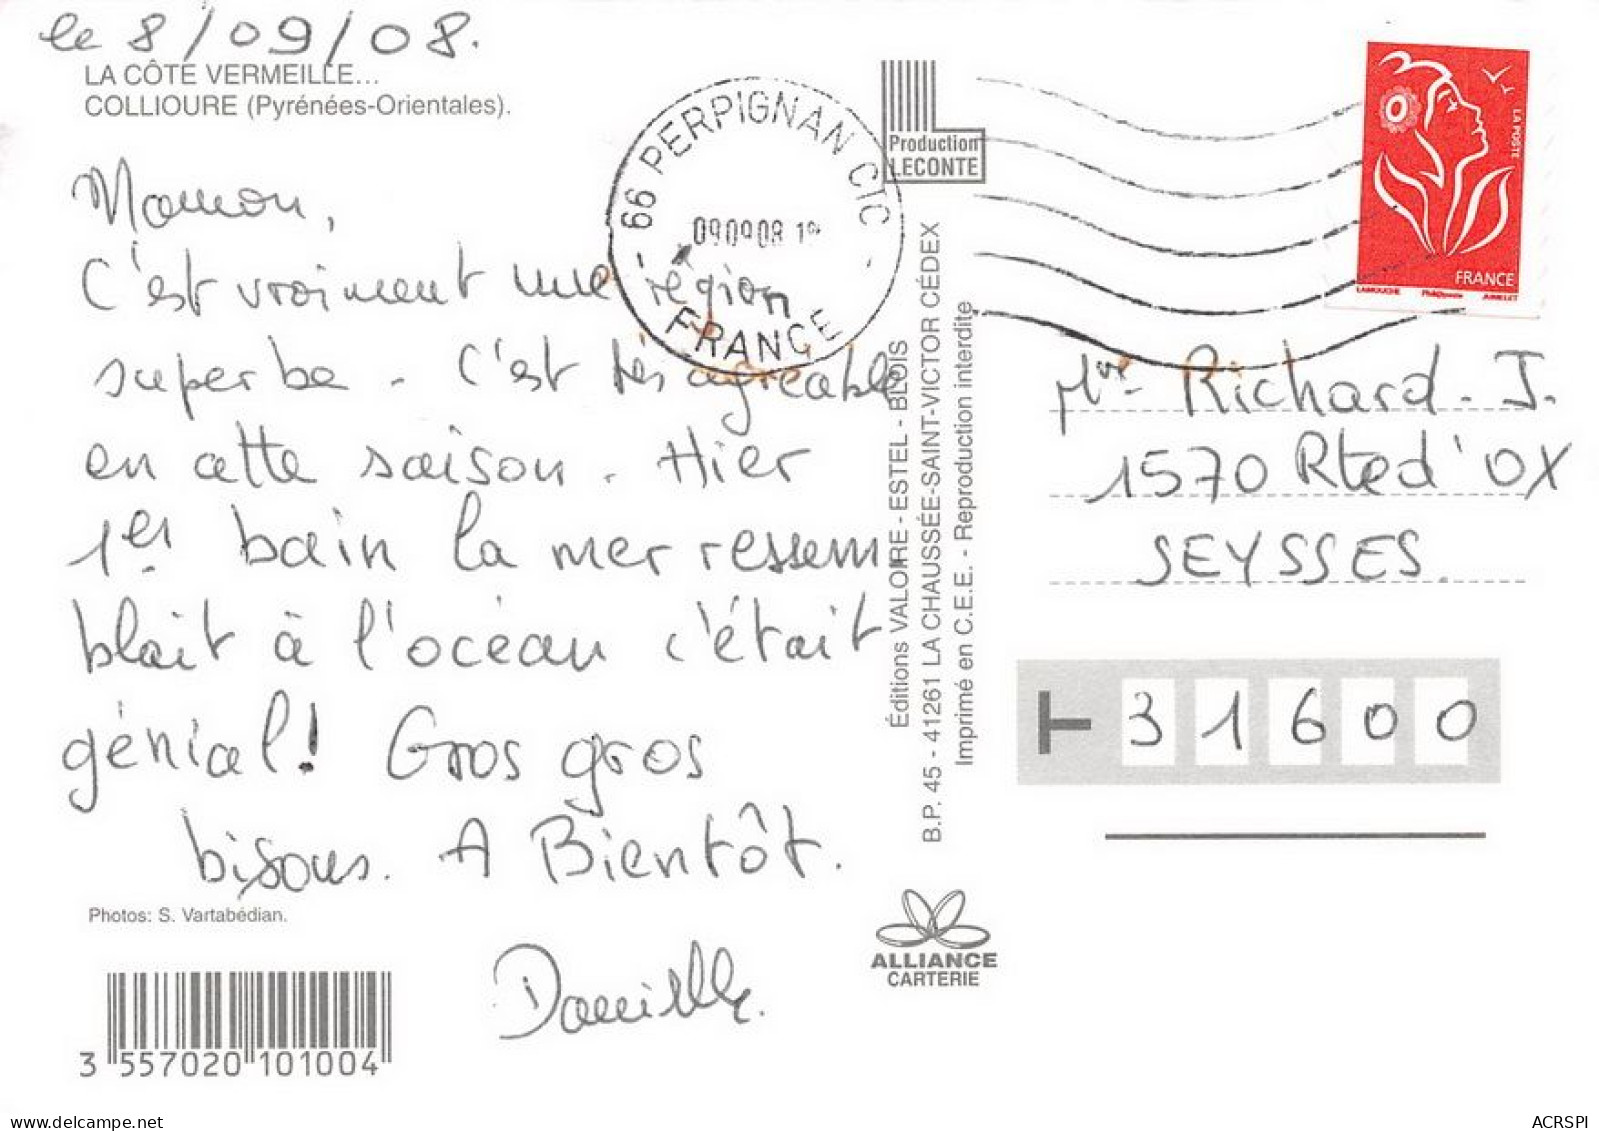 le 8/09/08.
LA CÔTE VERMEILLE...
COLLIOURE (Pyrénées-Orientales).
Maman,
C'est vraiment une région
superbe. C'est très agréable
en cette saison. Hier
1er bain la mer ressem
blait à l'océan c'était
génial! Gros gros
bisous. A Bientôt.
Danielle.
Photos: S. Vartabédian.
3 557020 101004
66 PERPIGNAN CTC
090908
FRANCE
Production
LECONTE
Éditions VALOIRE - ESTEL - BLOIS
B.P. 45 - 41261 LA CHAUSSÉE-SAINT-VICTOR CÉDEX
Imprimé en C.E.E. - Reproduction interdite
ALLIANCE
CARTERIE
LA POSTE
FRANCE
LAMOUCHE Phil@poste JUMELET
Mve Richard. J.
1570 Rte d'OX
SEYSSES.
31600
delcampe.net
ACRSPI